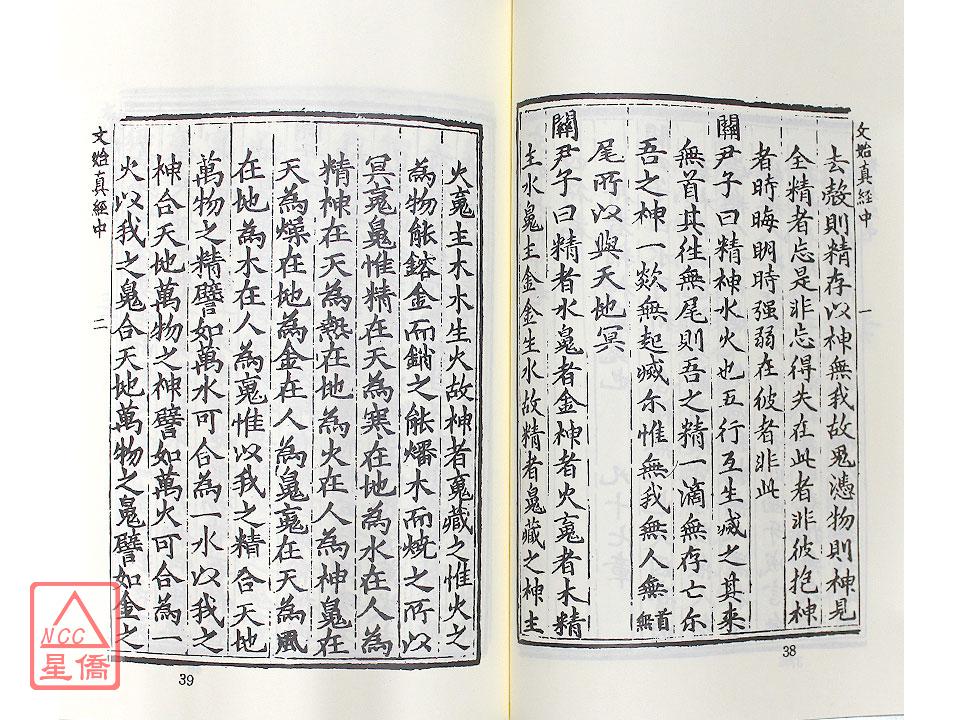 文始真經中
一
去殼則精存以神無我故鬼憑物則神見
全精者忘是非忘得失在此者非彼抱神
者時晦明時强弱在彼者非此
關尹子曰精神水火也五行互生滅之其來
無首其往無尾則吾之精一滴無存亡尒
吾之神一歘無起滅尒惟無我無人無首無
尾所以與天地冥
關尹子曰精者水魄者金神者火魂者木精
主水魄主金金生水故精者魄藏之神主
38
火魂主木木生火故神者魂藏之惟火之
為物能鎔金而銷之能燔木而燒之所以
冥魂魄惟精在天為寒在地為水在人為
精神在天為熱在地為火在人為神魄在
天為燥在地為金在人為魄魂在天為風
在地為木在人為魂惟以我之精合天地
萬物之精譬如萬水可合為一水以我之
神合天地萬物之神譬如萬火可合為一
火以我之魄合天地萬物之魄譬如金之
文始真經中
二
39
NCC
星僑